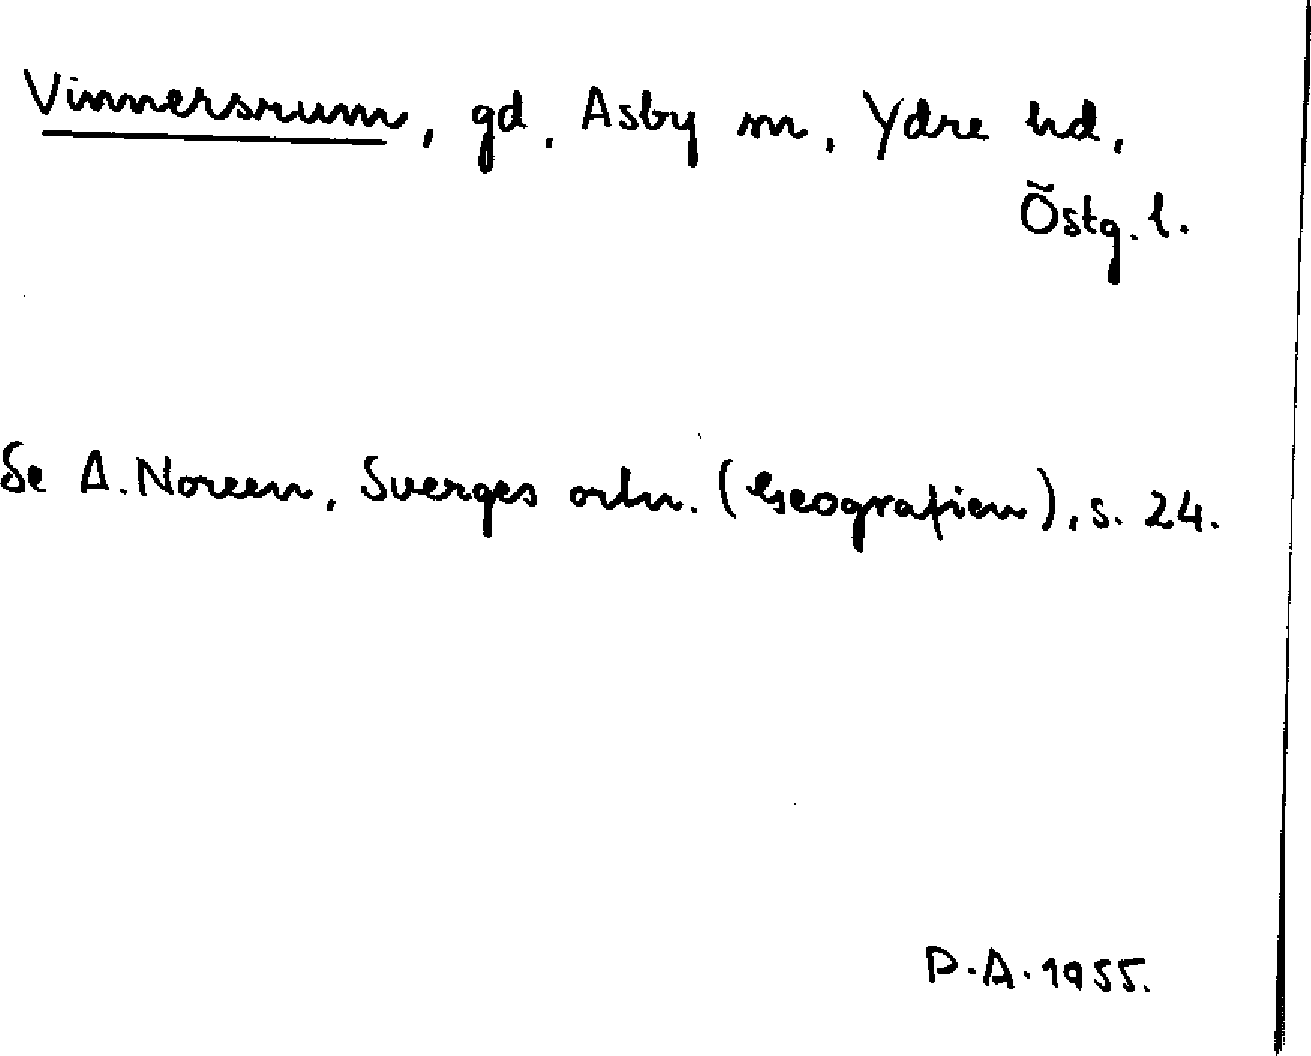 Vimmersrum, gd, Asby sn, Ydre hd,
Östg. l.
Se A. Noreen, Sverges ortn. (Geografien), s. 24.
D.A. 1955.